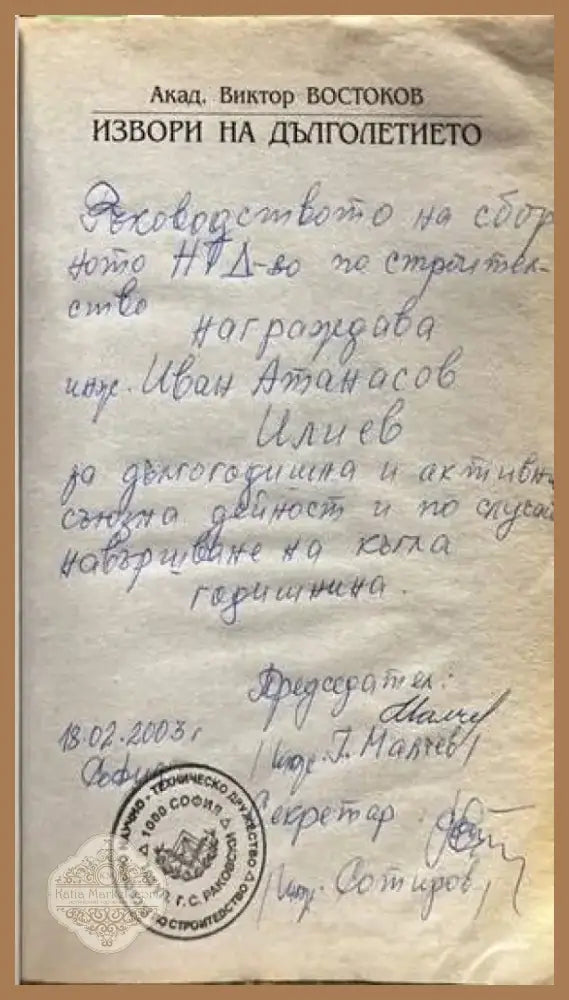 Акад. Виктор ВОСТОКОВ
ИЗВОРИ НА ДЪЛГОЛЕТИЕТО
Ръководството на сбор
ното НТД-во по строител-
ство
награждава
инж. Иван Атанасов
Илиев
за дългогодишна и активн
съюзна дейност и по случай
навършване на кръгла
годишнина.
Председател:
18.02.2003 г
/инж. Г. Малчев/
София
Секретар:
/инж. Сотиров/
НАУЧНО-ТЕХНИЧЕСКО ДРУЖЕСТВО
ПО СТРОИТЕЛСТВО
1000 СОФИЯ
Г.С. РАКОВСКИ
Katia Mark